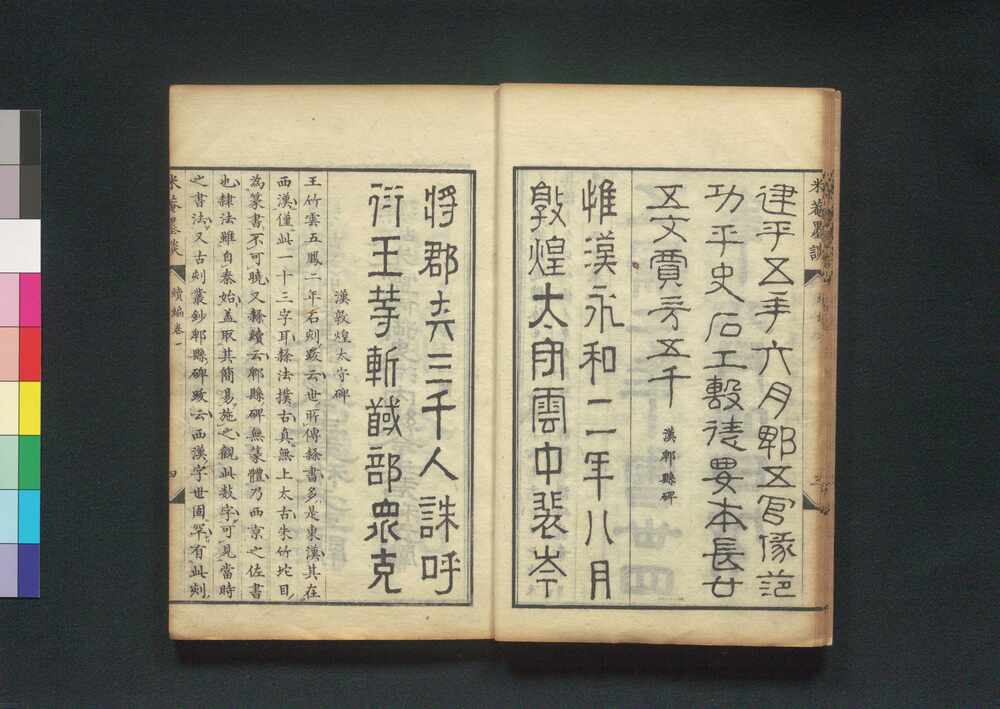 米菴墨談
建平五年六月郫五官掾范
功平史石工㲃徒要本長廿
五丈賈二万五千
漢郫縣碑
惟漢永和二年八月
敦煌太守雲中裴岑
將郡兵三千人誅呼
衍王等斬馘部衆克
漢敦煌太守碑
王竹雲五鳳二年石刻跋云世所傳隸書多是東漢其在
西漢僅此一十三字耳隸法撲古真無上太古朱竹垞目
為篆書不可曉又隸續云郫縣碑無篆體乃西京之佐書
也隸法雖自秦始盖取其簡易施之觀此數字可見當時
之書法又古刻叢鈔郫縣碑跋云西漢字世固罕有此刻
米菴墨談 續編卷一 四